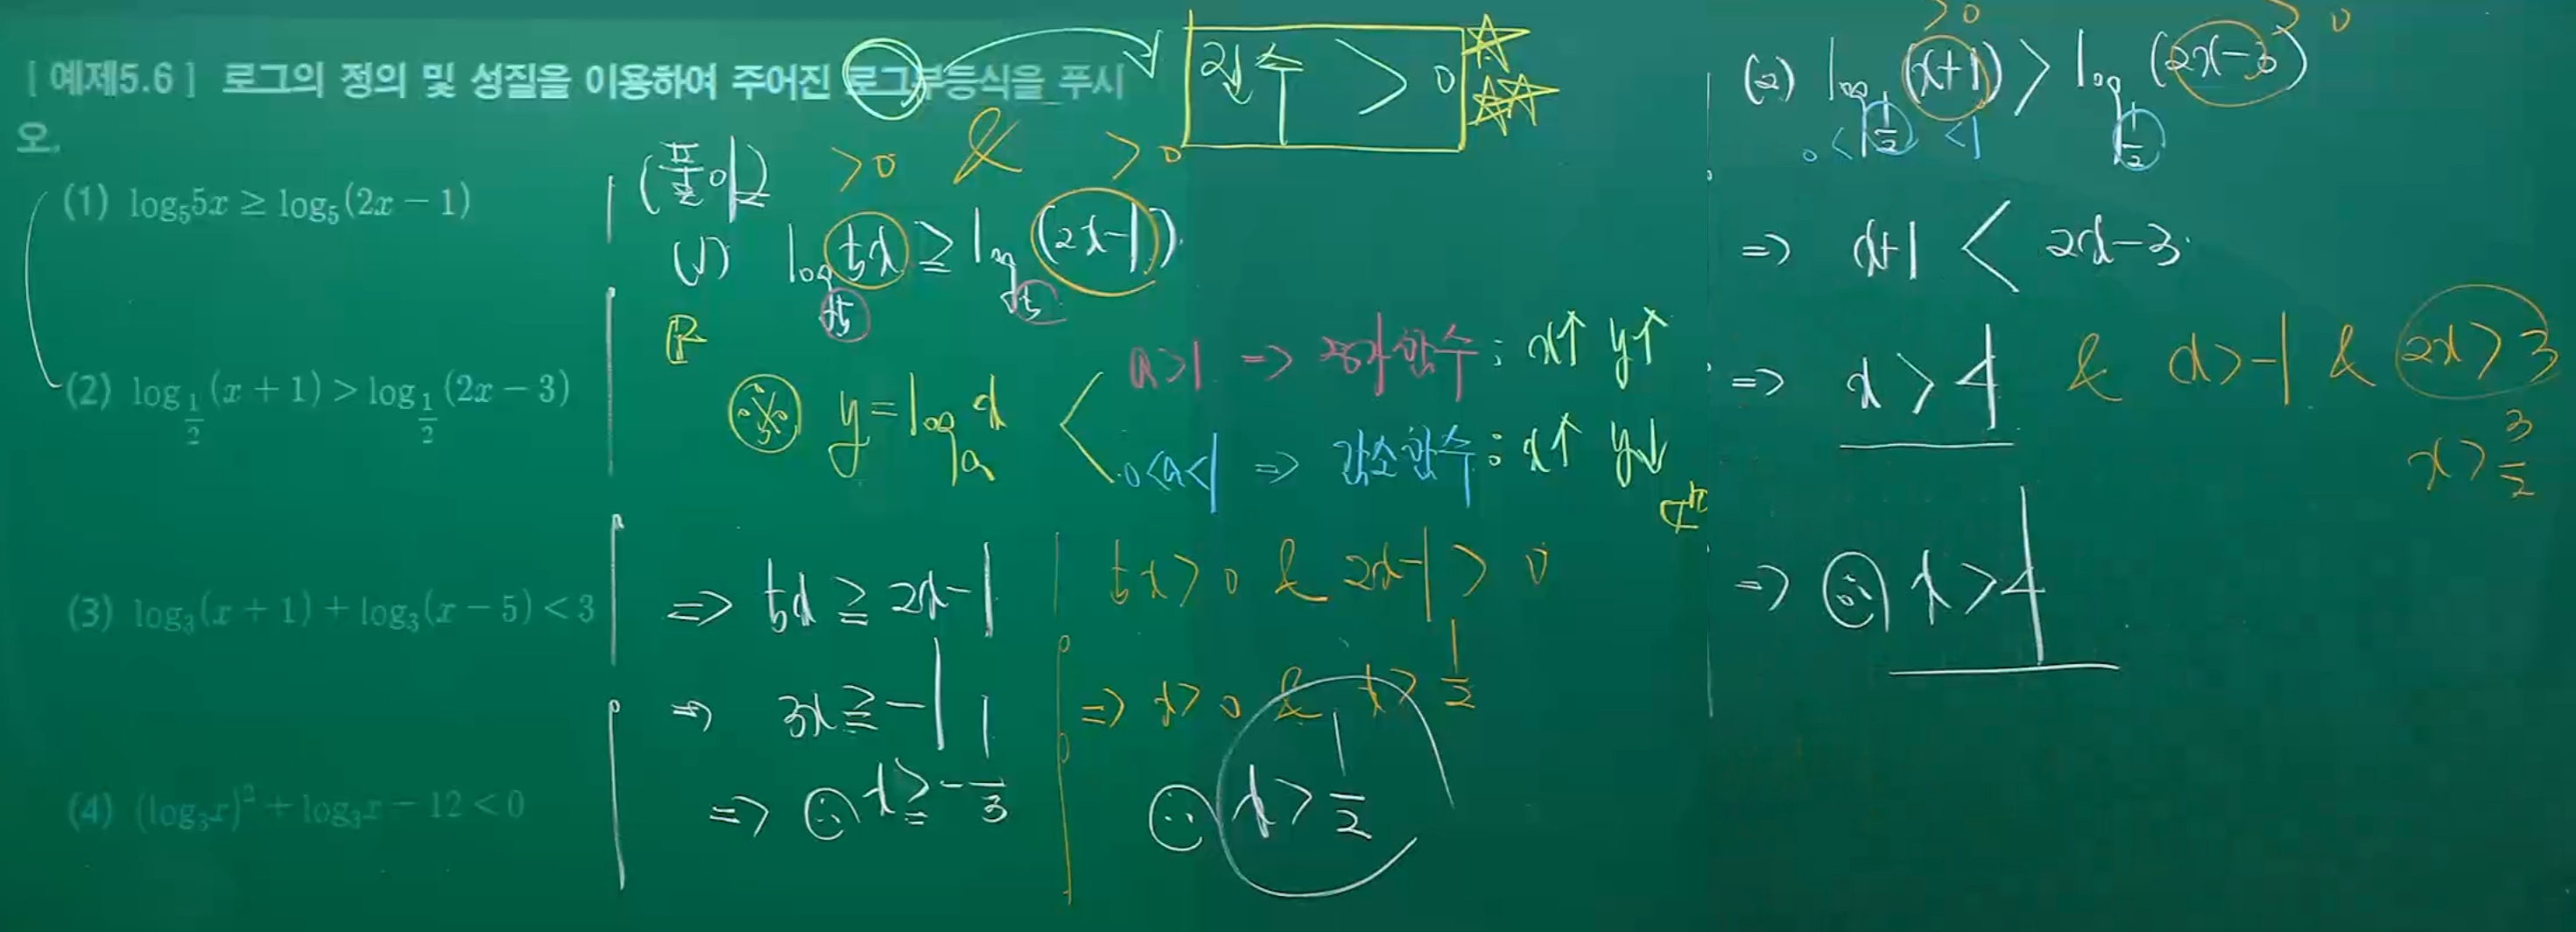 [ 예제5.6 ] 로그의 정의 및 성질을 이용하여 주어진 로그부등식을 푸시
오.
(1) log₅5x ≥ log₅(2x − 1)
(2) log_{1/2}(x + 1) > log_{1/2}(2x − 3)
(3) log₃(x + 1) + log₃(x − 5) < 3
(4) (log₃x)² + log₃x − 12 < 0
진수 > 0
(풀이)
>0 & >0
(1) log₅5x ≥ log₅(2x-1)
※ y = logₐx
a>1 => 증가함수 : x↑ y↑
0<a<1 => 감소함수 : x↑ y↓
=> 5x ≥ 2x-1
=> 3x ≥ -1
=> ∴ x ≥ -1/3
5x > 0 & 2x-1 > 0
=> x > 0 & x > 1/2
∴ x > 1/2
>0 > 0
(2) log_{1/2}(x+1) > log_{1/2}(2x-3)
0 < 1/2 < 1
=> x+1 < 2x-3
=> x > 4 & x > -1 & 2x > 3
x > 3/2
=> ∴ x > 4